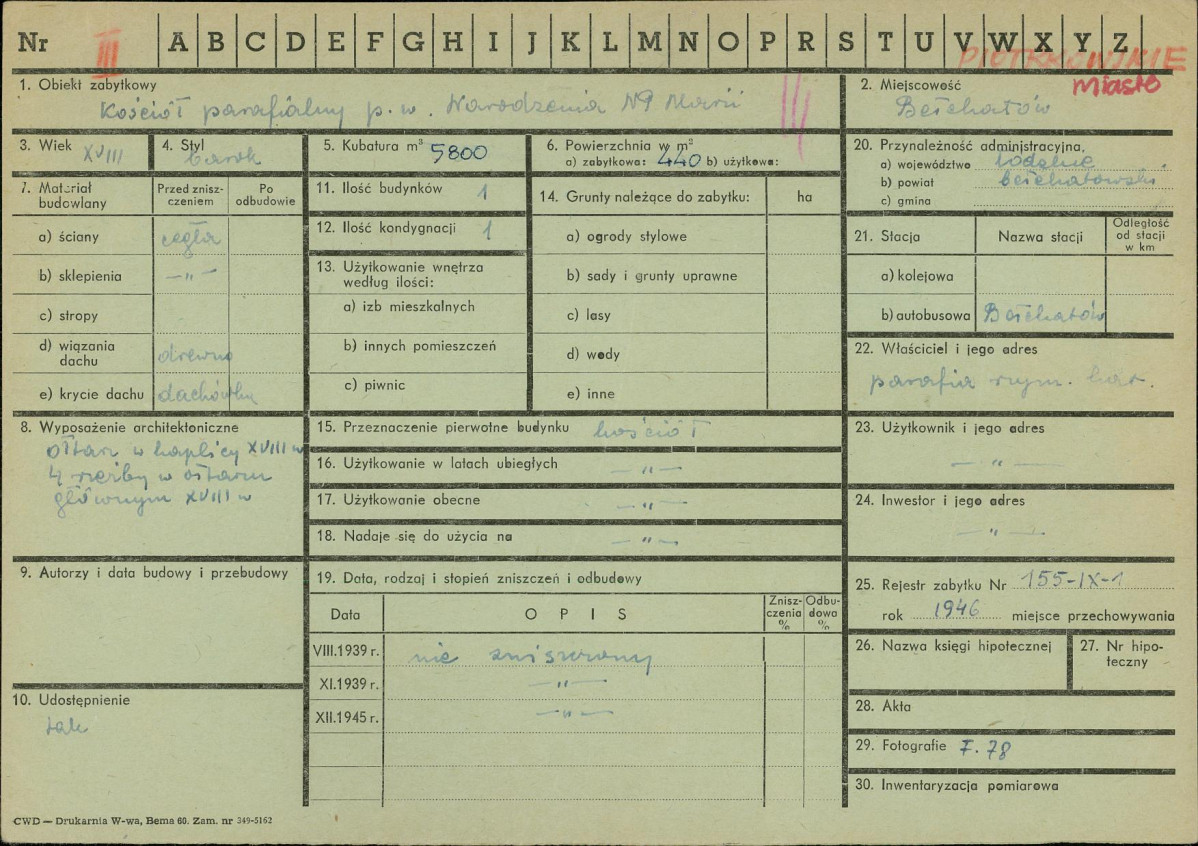 Nr III A B C D E F G H I J K L M N O P R S T U V W X Y Z
PIOTRKOWSKIE
miasto
1. Obiekt zabytkowy
Kościół parafialny p.w. Narodzenia N9 Marii
2. Miejscowość
Bełchatów
3. Wiek XVIII
4. Styl barok
5. Kubatura m³ 5800
6. Powierzchnia w m²
a) zabytkowa: 440 b) użytkowa:
20. Przynależność administracyjna,
a) województwo łódzkie
b) powiat bełchatowski
c) gmina
7. Materiał budowlany
Przed zniszczeniem
Po odbudowie
a) ściany cegła
b) sklepienia —„—
c) stropy
d) wiązania dachu drewno
e) krycie dachu dachówka
11. Ilość budynków 1
12. Ilość kondygnacji 1
13. Użytkowanie wnętrza
według ilości:
a) izb mieszkalnych
b) innych pomieszczeń
c) piwnic
14. Grunty należące do zabytku: ha
a) ogrody stylowe
b) sady i grunty uprawne
c) lasy
d) wody
e) inne
21. Stacja
Nazwa stacji
Odległość
od stacji
w km
a) kolejowa
b) autobusowa Bełchatów
22. Właściciel i jego adres
parafia rzym. kat.
8. Wyposażenie architektoniczne
ołtarz w kaplicy XVIII w
4 rzeźby w ołtarzu
głównym XVIII w
15. Przeznaczenie pierwotne budynku kościół
16. Użytkowanie w latach ubiegłych —„—
17. Użytkowanie obecne —„—
18. Nadaje się do użycia na —„—
23. Użytkownik i jego adres
—„—
24. Inwestor i jego adres
—„—
9. Autorzy i data budowy i przebudowy
19. Data, rodzaj i stopień zniszczeń i odbudowy
Data
OPIS
Zniszczenia %
Odbudowa %
VIII.1939 r. nie zniszczony
XI.1939 r. —„—
XII.1945 r. —„—
25. Rejestr zabytku Nr 155-IX-1
rok 1946 miejsce przechowywania
26. Nazwa księgi hipotecznej
27. Nr hipoteczny
10. Udostępnienie
tak
28. Akta
29. Fotografie F. 78
30. Inwentaryzacja pomiarowa
CWD — Drukarnia W-wa, Bema 60. Zam. nr 349-5162